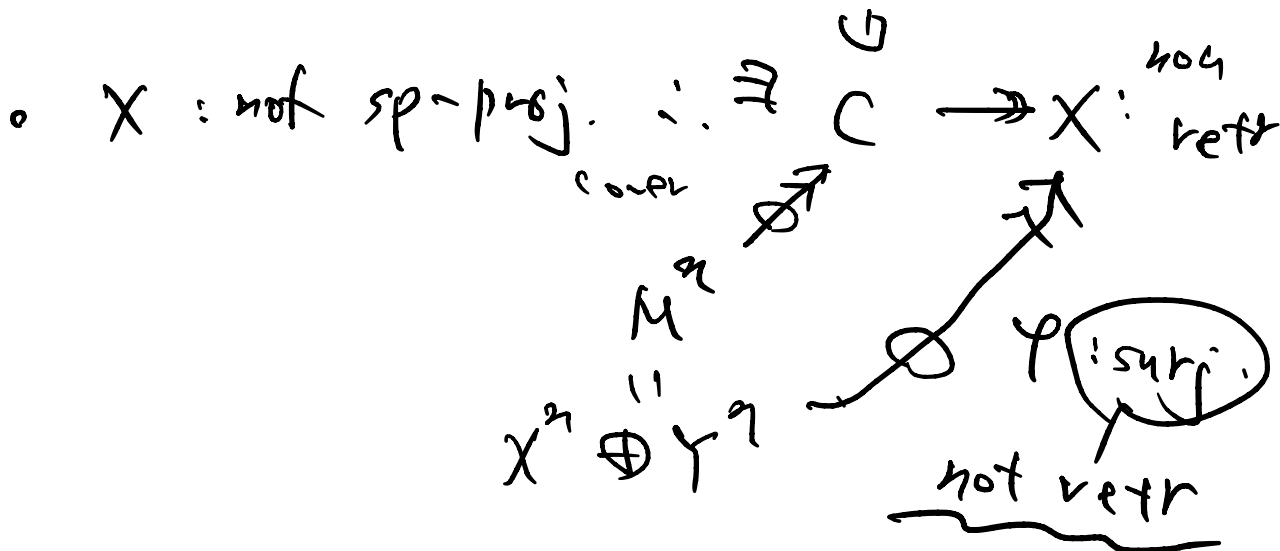 • X : not sp-proj. ∴ ∃ C ↠ X : non retr
cover
M^n
||
X^n ⊕ Y^n
φ : surj.
not retr